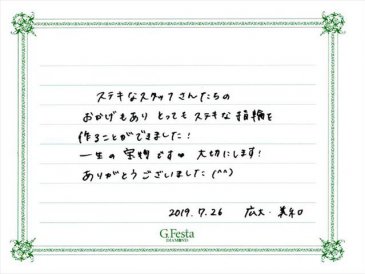 ステキなスタッフさんたちの
おかげもあり とっても ステキな 指輪を
作ることができました!
一生の 宝物です♥ 大切にします!
ありがとうございました(^^)
2019.7.26 広大・美和
G.Festa
DIAMOND